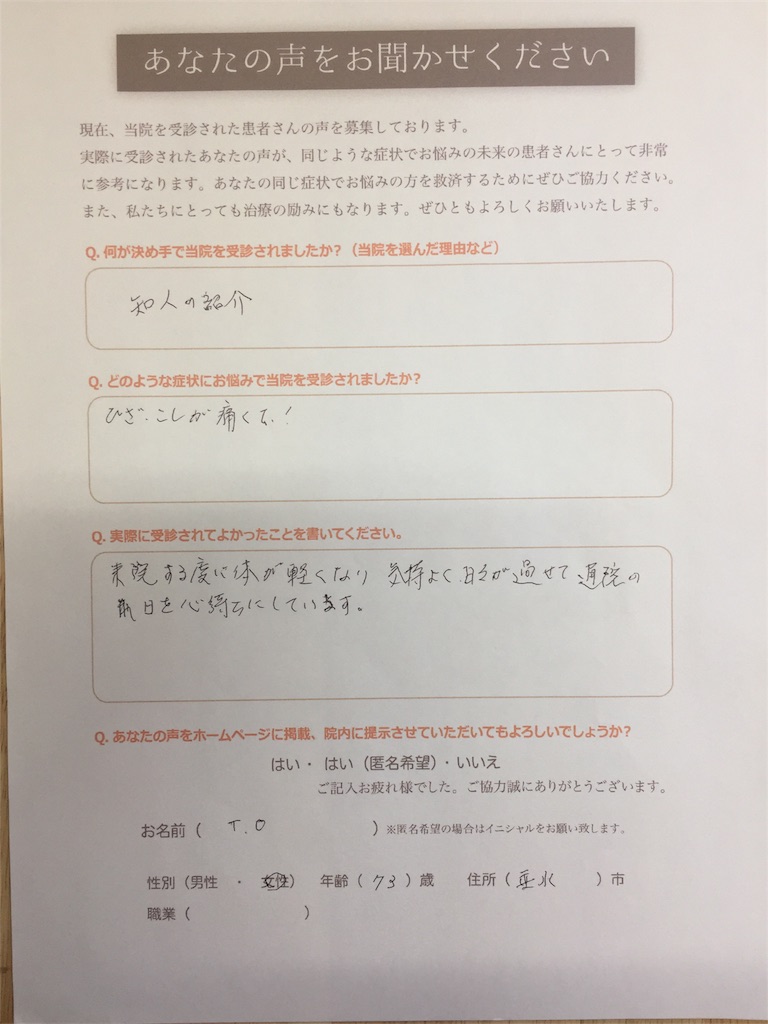 あなたの声をお聞かせください
現在、当院を受診された患者さんの声を募集しております。
実際に受診されたあなたの声が、同じような症状でお悩みの未来の患者さんにとって非常
に参考になります。あなたの同じ症状でお悩みの方を救済するためにぜひご協力ください。
また、私たちにとっても治療の励みにもなります。ぜひともよろしくお願いいたします。
Q. 何が決め手で当院を受診されましたか？（当院を選んだ理由など）
知人の紹介
Q. どのような症状にお悩みで当院を受診されましたか？
ひざ、こしが痛くて！
Q. 実際に受診されてよかったことを書いてください。
来院する度に体が軽くなり 気持よく日々が過せて通院の
日を心待ちにしています。
Q. あなたの声をホームページに掲載、院内に提示させていただいてもよろしいでしょうか？
はい・ はい（匿名希望）・いいえ
ご記入お疲れ様でした。ご協力誠にありがとうございます。
お名前（ T.O ）※匿名希望の場合はイニシャルをお願い致します。
性別（男性 ・ 女性） 年齢（ 73 ）歳 住所（ 垂水 ）市
職業（ ）